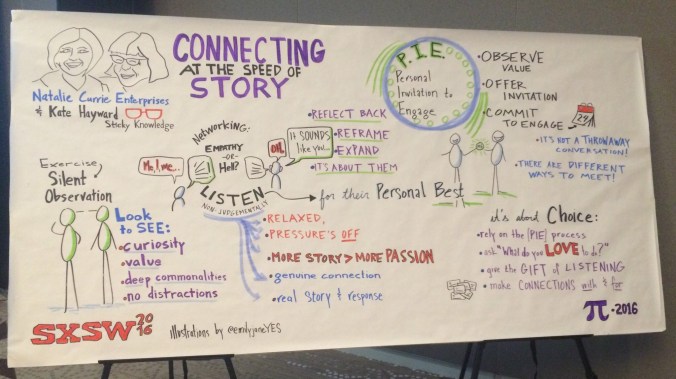 CONNECTING
AT THE SPEED OF
STORY
Natalie Currie Enterprises
& Kate Hayward
Sticky Knowledge
P.I.E.
Personal
Invitation to
Engage
• OBSERVE
VALUE
• OFFER
INVITATION
• COMMIT
TO ENGAGE
• IT'S NOT A THROWAWAY
CONVERSATION!
• THERE ARE DIFFERENT
WAYS TO MEET!
Networking:
EMPATHY
-OR-
Hell?
Me, I, me...
OR,
IT SOUNDS
like you...
• REFLECT BACK
• REFRAME
• EXPAND
• IT'S ABOUT THEM
LISTEN
NON-JUDGEMENTALLY
for their Personal Best
Exercise,
Silent
Observation
Look
to SEE:
• curiosity
• value
• deep commonalities
• no distractions
• RELAXED,
PRESSURE'S OFF
• MORE STORY > MORE PASSION
• genuine connection
• real story & response
it's about Choice:
• rely on the (PIE) process
• ask "What do you LOVE to do?"
• give the GIFT of LISTENING
• make CONNECTIONS with & for
SXSW 2016
Illustrations by @emilyjaneYES
π • 2016